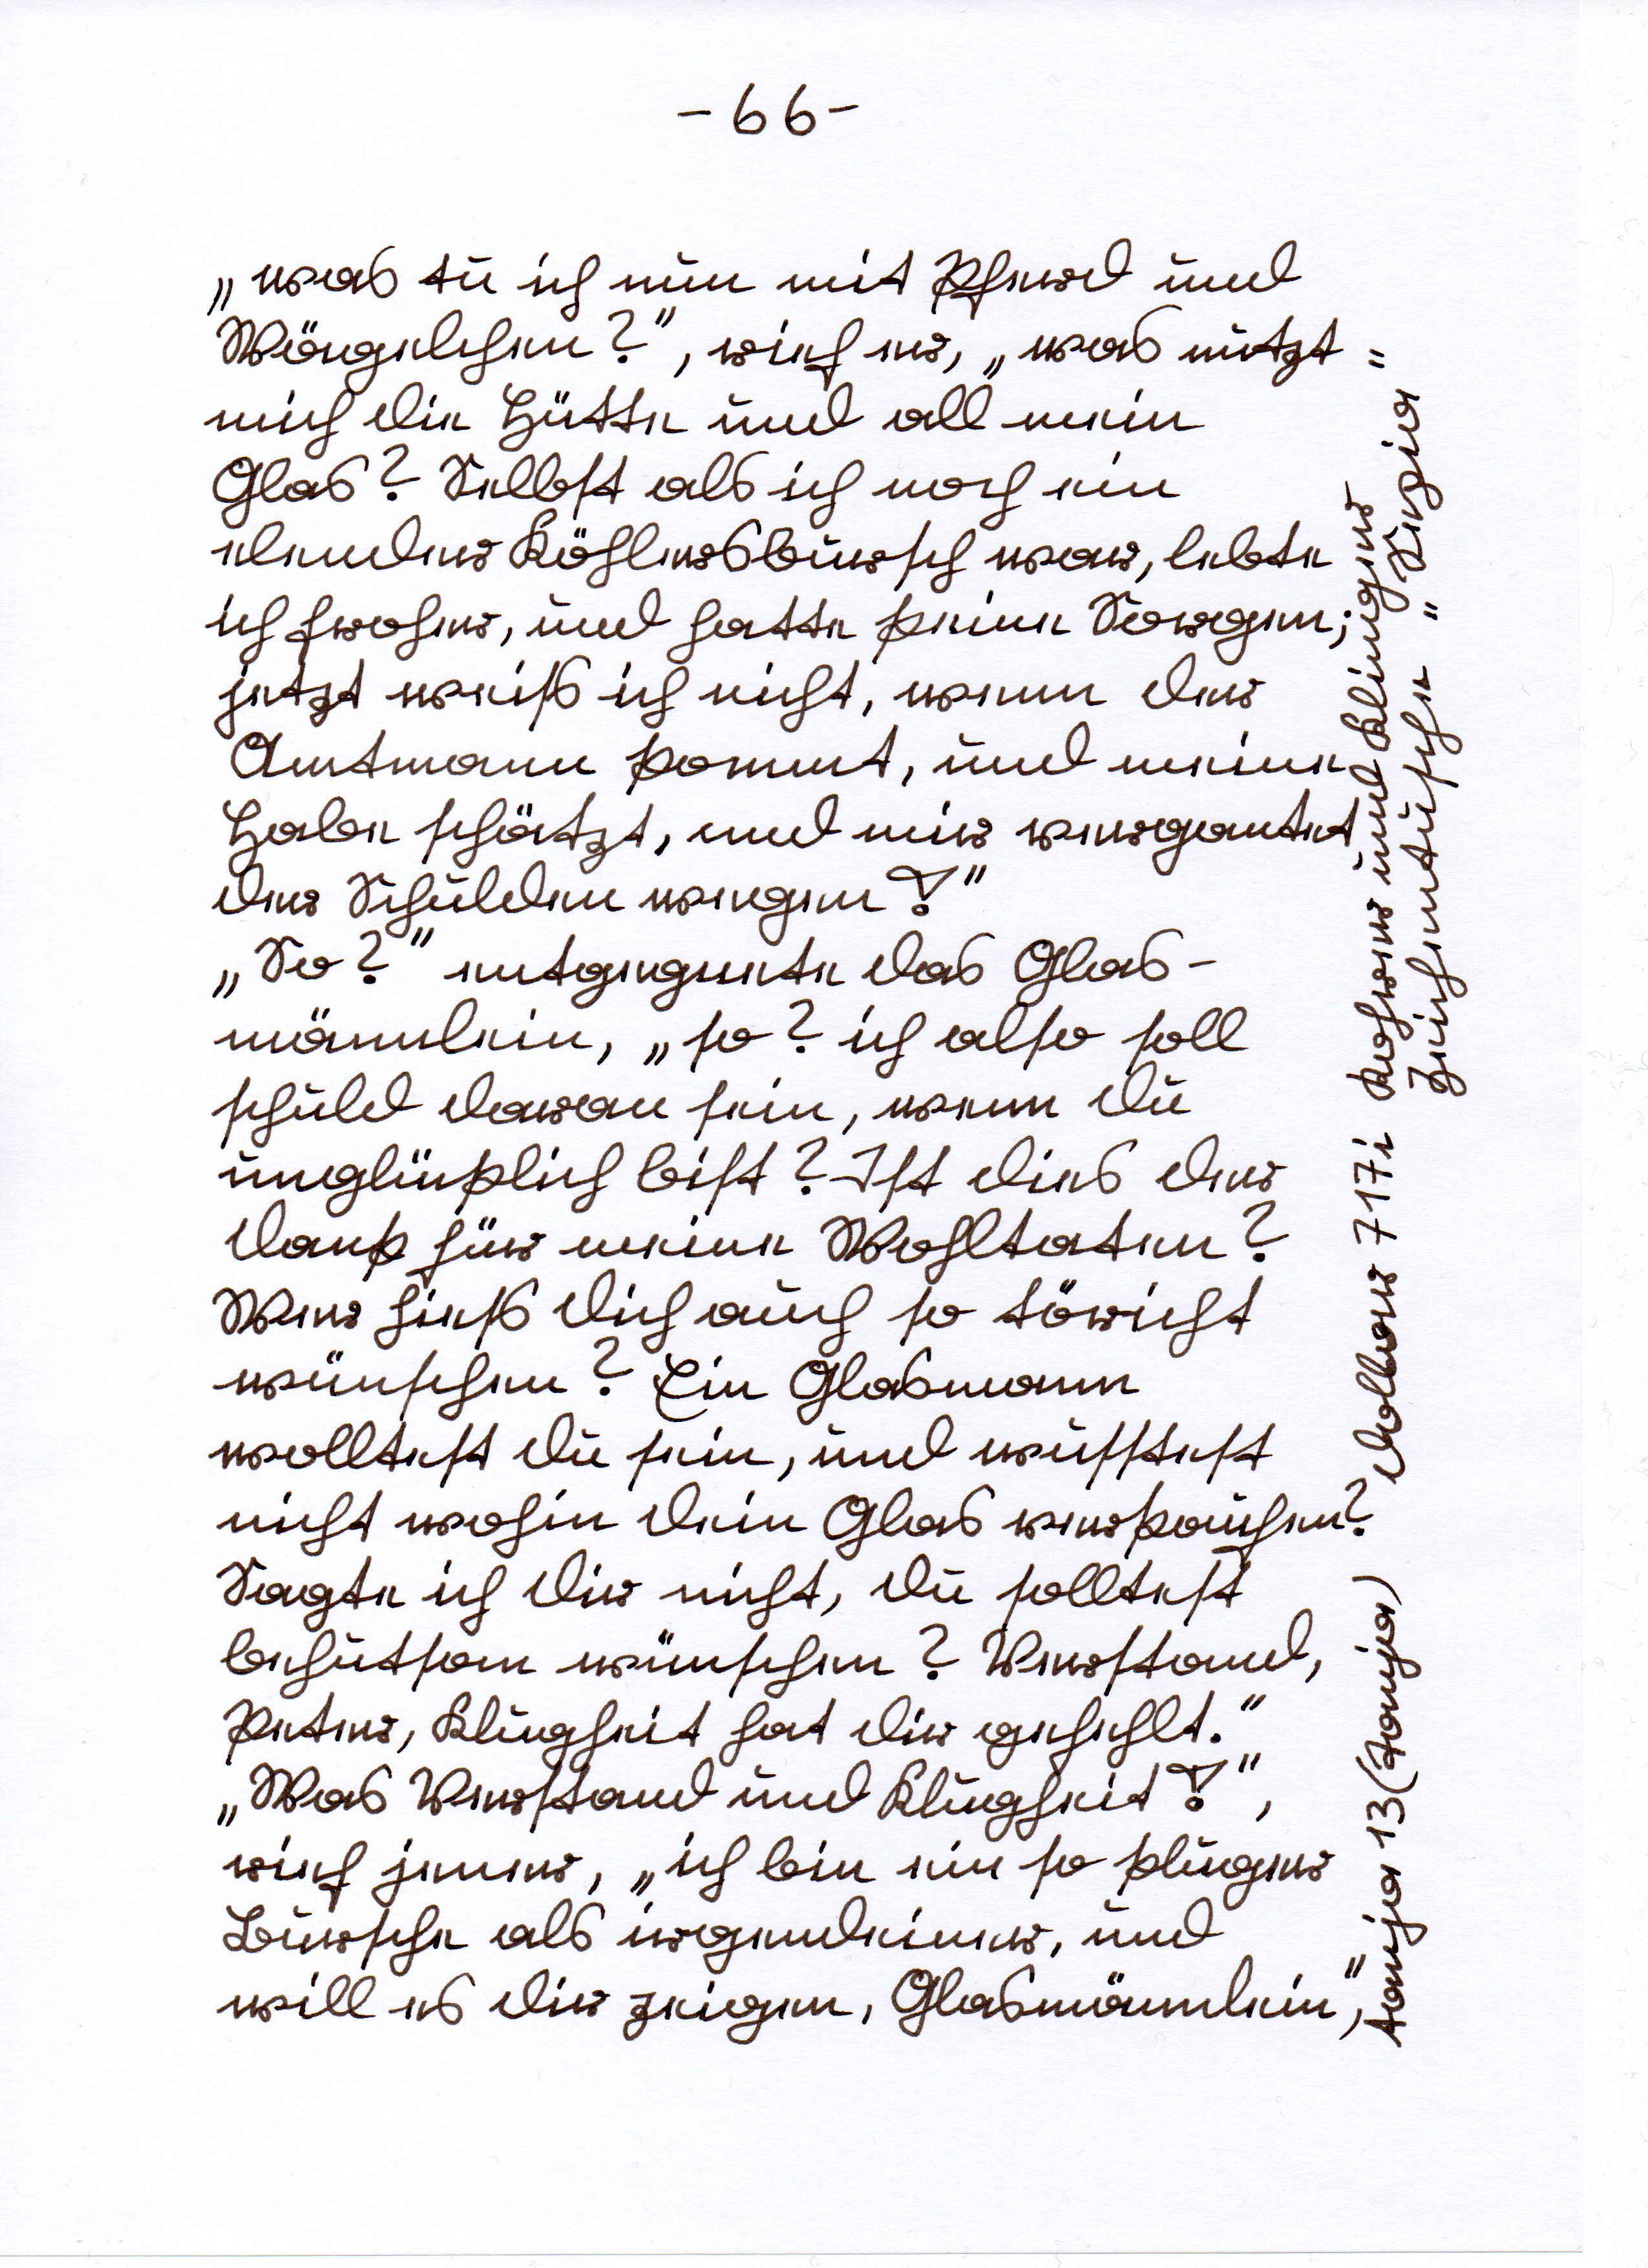 - 66 -
„was tu ich nun mit Pferd und
Wägelchen?", rief er, „was nutzt =
mich die Hütte und all mein
Glas? Selbst als ich noch ein
elender Köhlersbursch war, lebte
ich froher, und hatte keine Sorgen;
jetzt weiß ich nicht, wenn der
Amtmann kommt, und meine
Habe schätzt, und mir vergantet
der Schulden wegen‽"
„So?" entgegnete das Glas-
männlein, „so? ich also soll
schuld daran sein, wenn du
unglücklich bist? Ist dies der
Dank für meine Wohltaten?
Wer hieß dich auch so töricht
wünschen? Ein Glasmann
wolltest du sein, und wusstest
nicht wohin dein Glas verkaufen?
Sagte ich dir nicht, du solltest
behutsam wünschen? Verstand,
Peter, Klugheit hat dir gefehlt."
„Was Verstand und Klugheit‽",
rief jener, „ich bin ein so kluger
Bursche als irgendeiner, und
will es dir zeigen, Glasmännlein",
tanja 13 (Tanja) 717i Rohrer und Klinger
Zeichentusche „Sepia